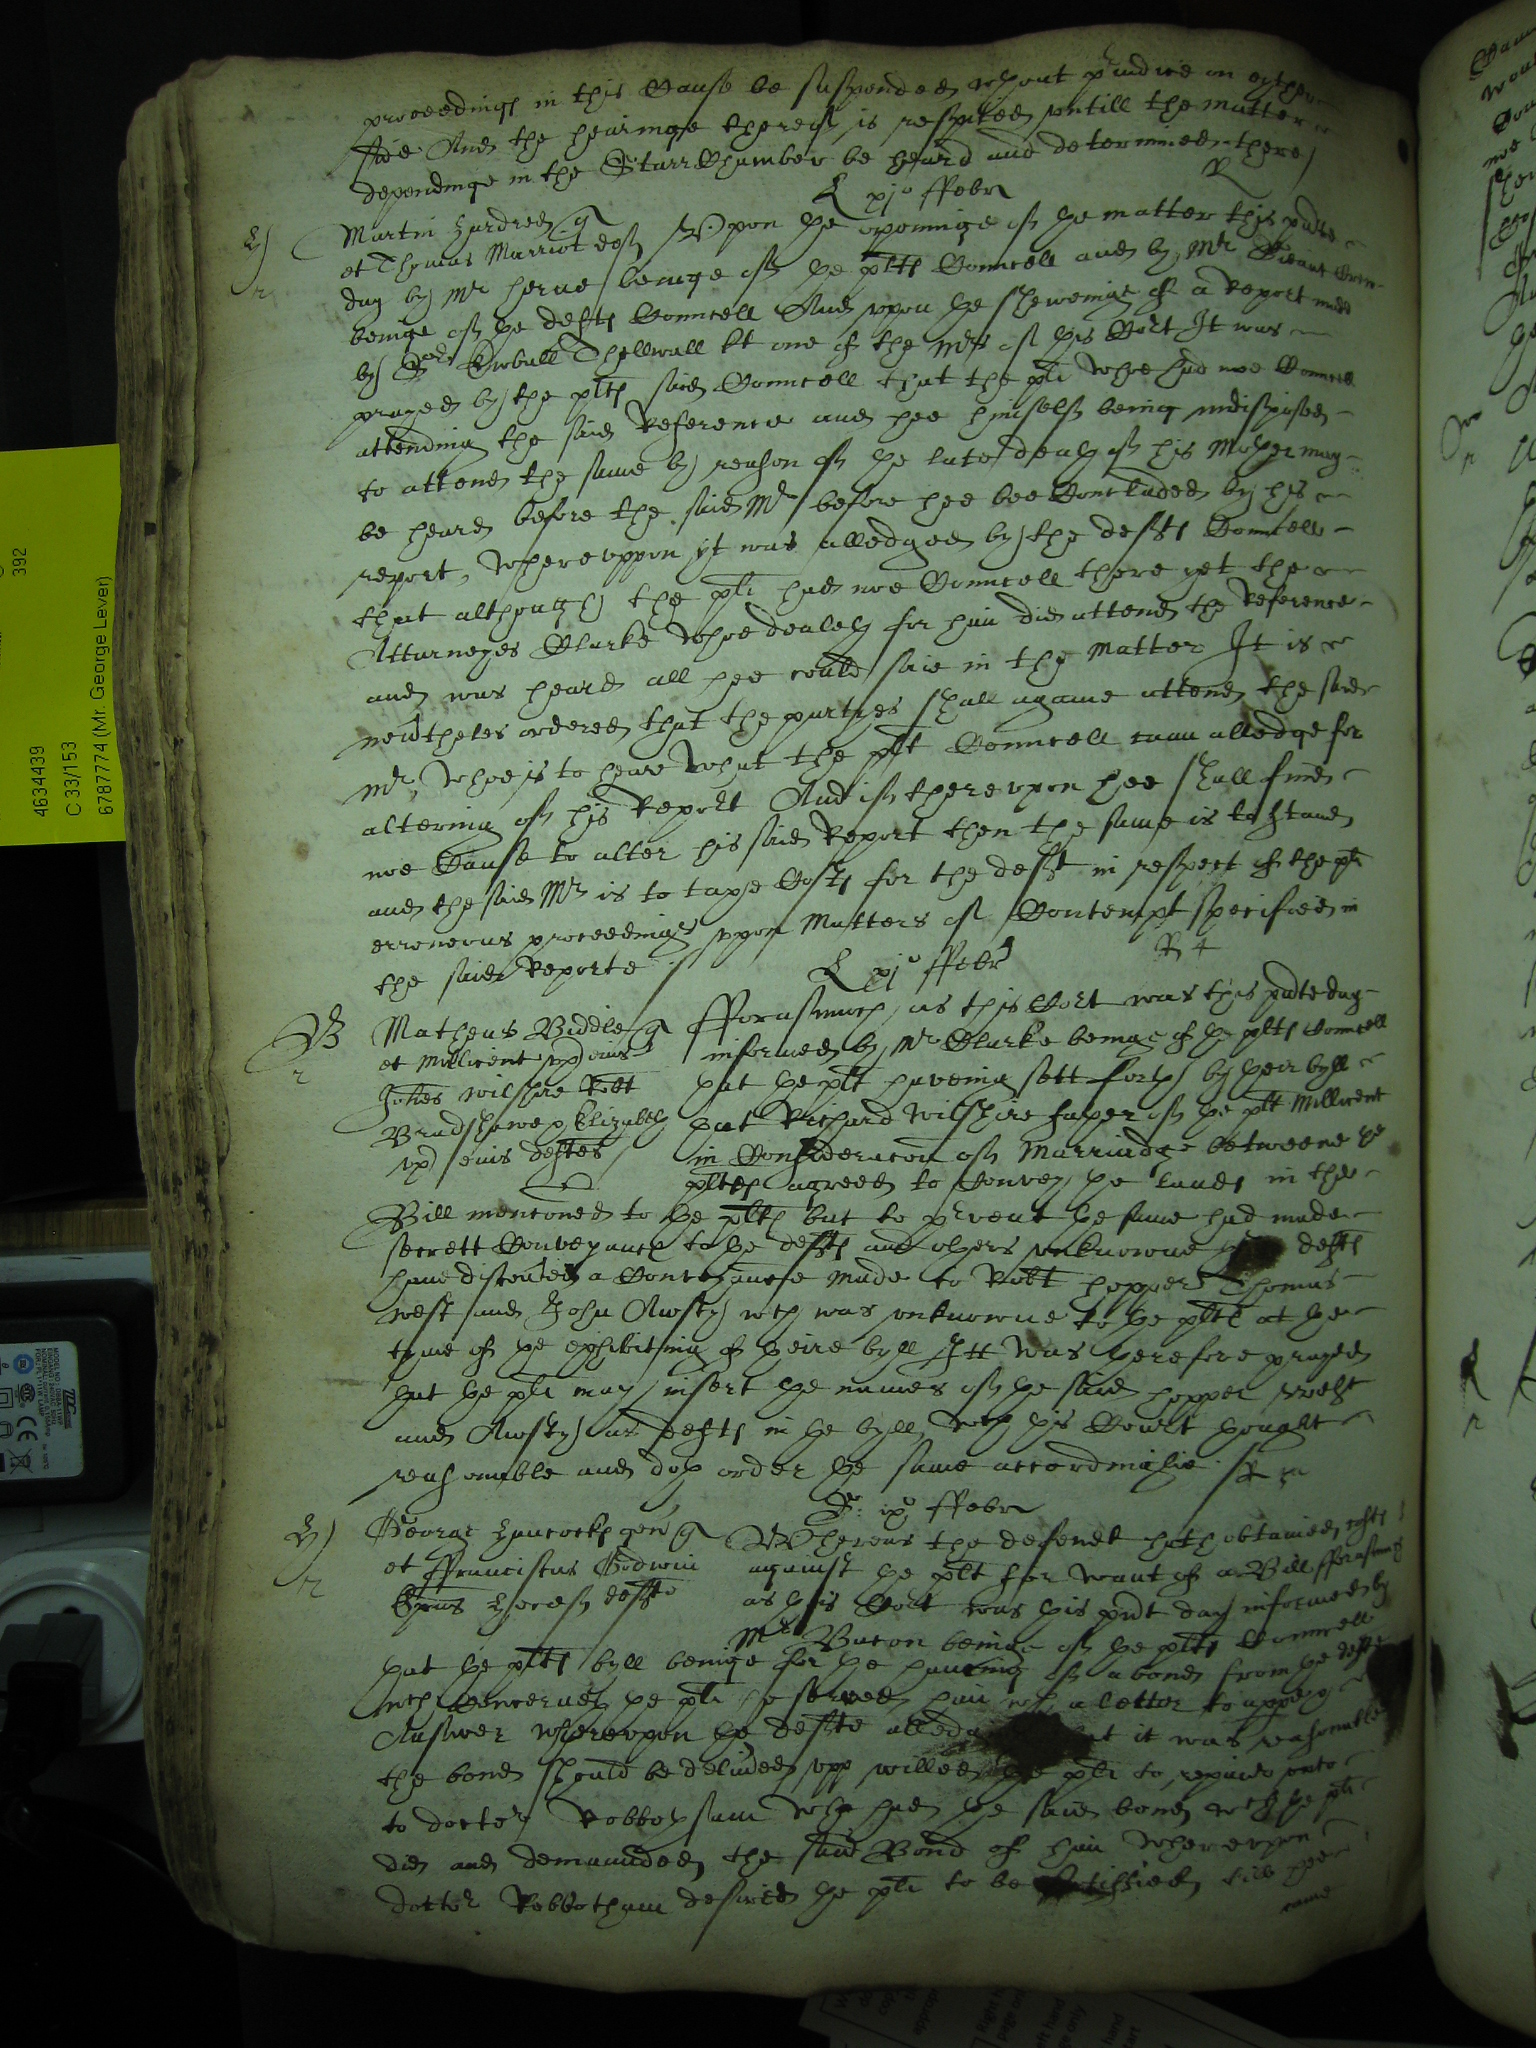 proceedings in this Cause be suspended wthout p'iudice on eyther
side And the hearinge thereof is respited untill the matter
dependinge in the Starr Chamber be heard and determined there
L xj° ffebr
R
Martin q
et Thomas Marriot deft Upon the openinge of the matter this pnte
day by Mr Herne beinge of the plts Councell and by Mr
beinge of the defts Councell And uppon the shewinge of a Report made
by Sr Ewbull Thellwall kt one of the Mrs of this Cort It was
prayed by the plts said Councell that the plt whoe had noe Councell
attending the said Reference and hee himself being indisposed
to attend the same by reason of the late death of his Mother may
be heard before the said Mr before hee bee Concluded by his
report, whereuppon yt was alledged by the defts Councell
that although the plt had noe Councell there yet the
Atturneyes Clarke whoe dealeth for him did attend the Reference
and was heard all hee could saie in the Matter It is
neu'theles ordered that the partyes shall againe attend the said
Mr, whoe is to heare what the plt Councell cann alledge for
altering of his Report And if thereupon hee shall finde
noe Cause to alter his said Report then the same is to stand
and the said Mr is to taxe Costs for the deft in respect of the plt
erronious proceedings uppon Matters of Contempt specified in
the said Reporte
L xj° ffebr
R
Matheus Biddle q fforasmuch as this Cort was this pnte day
et Millicent uxr eius informed by Mr Clarke being of the plts Councell
Johes Wilshire Robt that the plt haveing sett forth by their byll
Bradshawe & Elizabeth that Richard Wilshire father of the plt Millicent
uxr eius deftes in Consideracon of Marriadge betweene the
pltes agreed to Convey the lands in the
Bill menconed to the plts but to p'vent the same had made
secrett Conveyance to the defts and others unknowne defts
have discou'ed a Conveyance made to Robt Hopper Thomas
West and John Awsty wch was unknowne to the plts at the
tyme of the exhibiting of theire byll Itt was therefore prayed
that the plt may insert the names of the said Hopper West
and Awsty as defts in the byll, wch this Court thought
reasonable and doth order the same accordinglie
ixo ffebr
George Hancock gen q Whereas the defendt hath obtained costs
et ffranciscus Godwin against the plt for want of a Bill fforasmuch
deft as this Cort was this pnt day informed by
Mr Bacon being of the plts Councell
that the plts byll beinge for the having of a bond from the deft
wch Concerneth the plt he served him wth a letter to appeare &
Answer whereupon the defte alledg it was reasonable
the bond should be deliu'ed upp willed the plt to repaire unto
to doctor Robbotham who had the said bond wch the plt
did and demaunded the said Bond of him whereupon
doctor Robbotham desired the plt to be till hee
came
4634439
C 33/153
6787774 (Mr. George Lever)
392